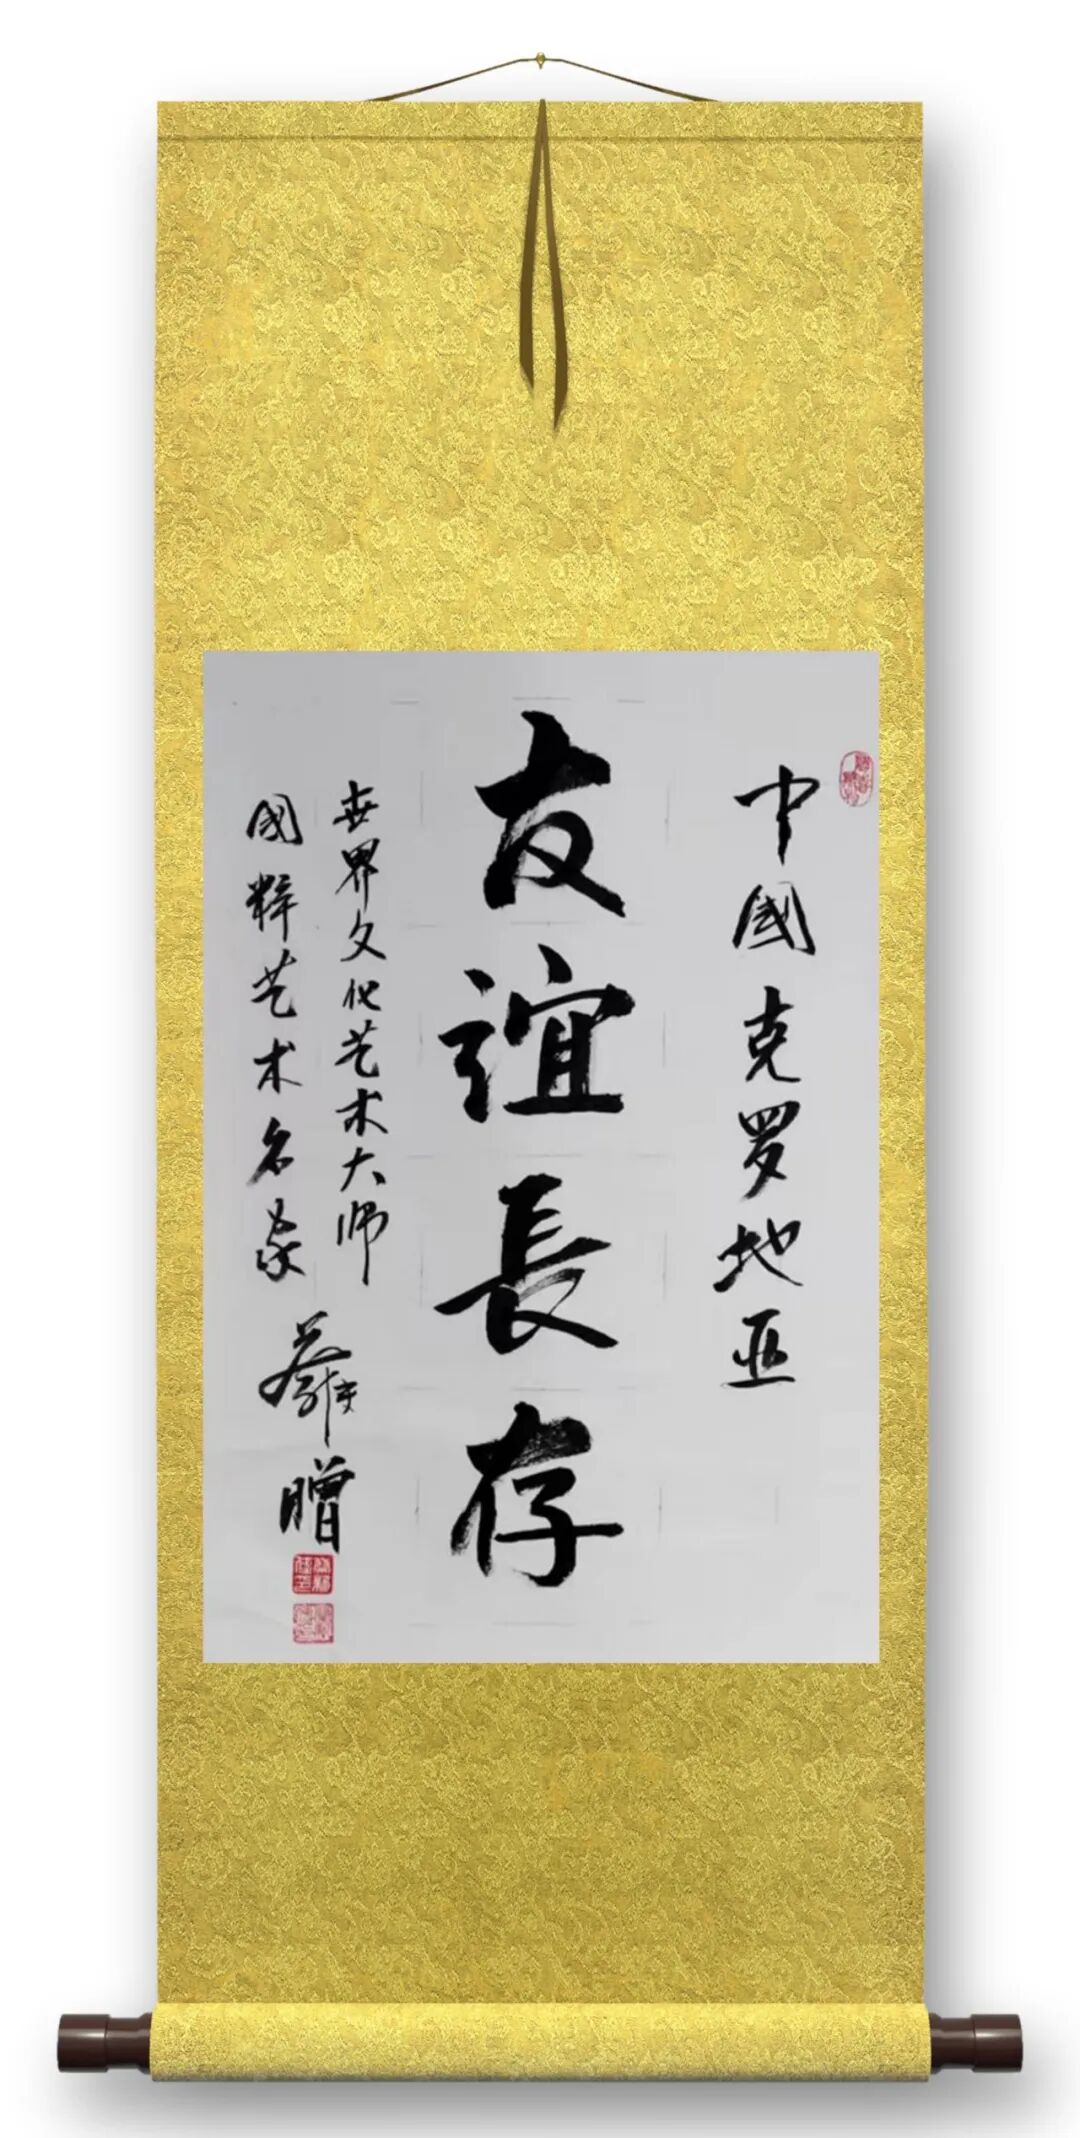 中國克罗地亚
友谊長存
世界文化艺术大师
國粹艺术名家
赠